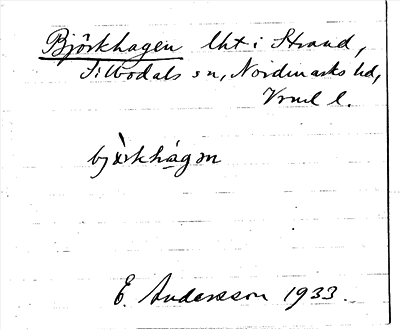 Björkhagen lht i Strand,
Silbodals sn, Nordmarks hd,
Vrml l.
bjὰrkhágən
E. Andersson 1933.